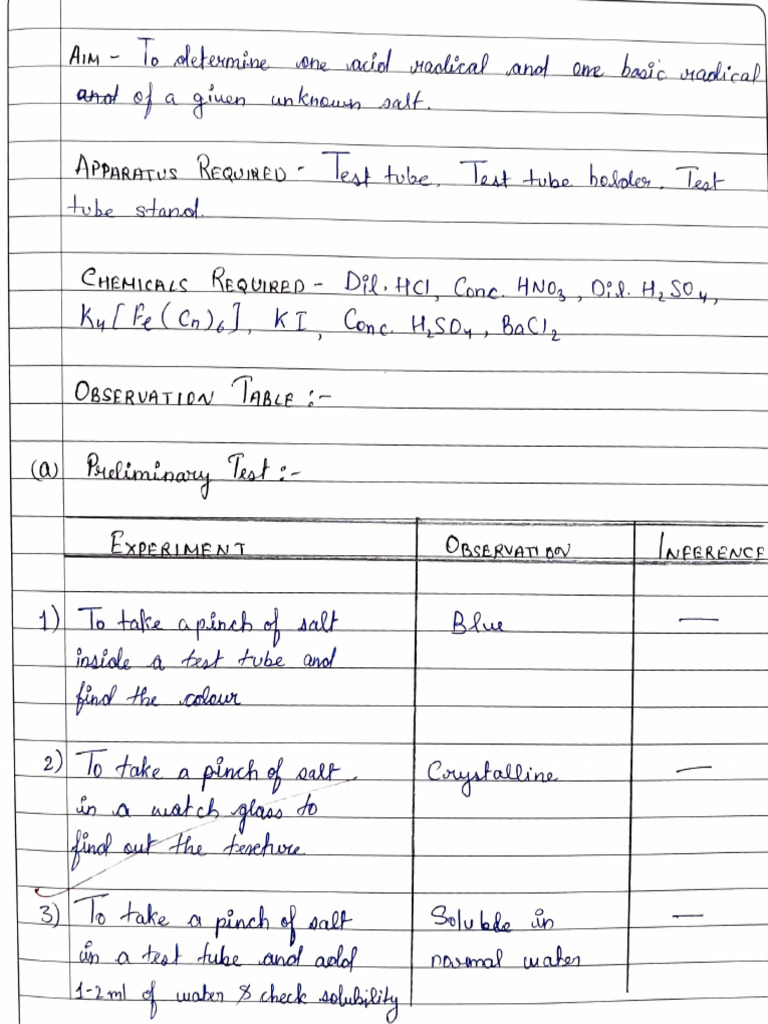 AIM - To determine one acid radical and one basic radical
and of a given unknown salt.
APPARATUS REQUIRED - Test tube, Test tube holder, Test
tube stand.
CHEMICALS REQUIRED - Dil. HCl, Conc. HNO₃, Dil. H₂SO₄,
K₄[Fe(Cn)₆], KI, Conc. H₂SO₄, BaCl₂
OBSERVATION TABLE :-
(a) Preliminary Test :-
EXPERIMENT OBSERVATION INFERENCE
1) To take a pinch of salt Blue —
inside a test tube and
find the colour
2) To take a pinch of salt Crystalline —
in a watch glass to
find out the texture
3) To take a pinch of salt Soluble in —
in a test tube and add normal water
1-2 ml of water & check solubility